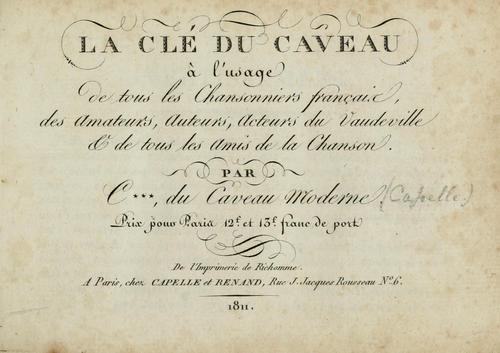 LA CLÉ DU CAVEAU
à l'usage
de tous les Chansonniers français,
des Amateurs, Auteurs, Acteurs du Vaudeville
& de tous les Amis de la Chanson.
PAR
C***, du Caveau Moderne (Capelle.)
Prix pour Paris 12f. et 13f. franc de port
De l'Imprimerie de Richomme.
A Paris, chez CAPELLE et RENAND, Rue J. Jacques Rousseau No. 6.
1811.